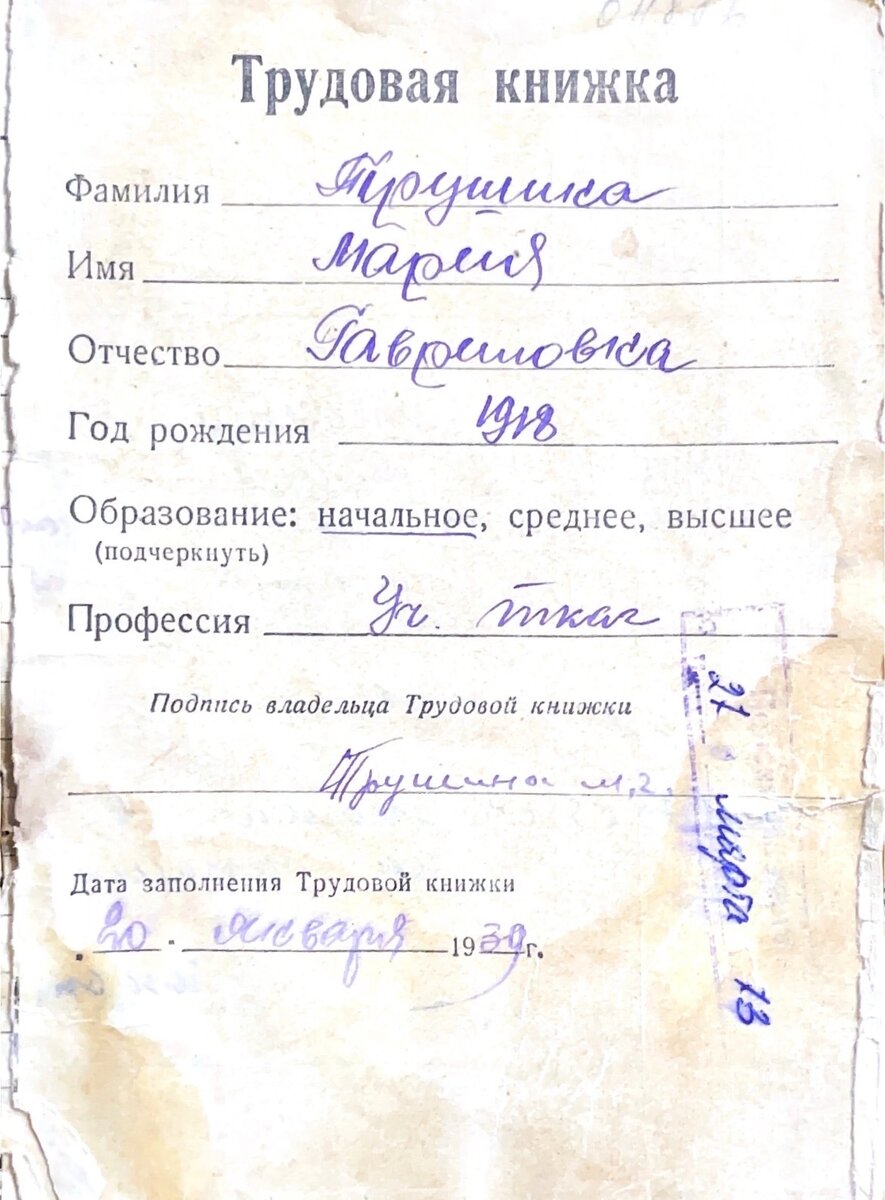 Трудовая книжка
Фамилия Трушина
Имя Мария
Отчество Гавриловна
Год рождения 1918
Образование: начальное, среднее, высшее
(подчеркнуть)
Профессия Уч. ткач
Подпись владельца Трудовой книжки
Трушина М.Г.
Дата заполнения Трудовой книжки
20 Января 1939 г.
27 марта 73